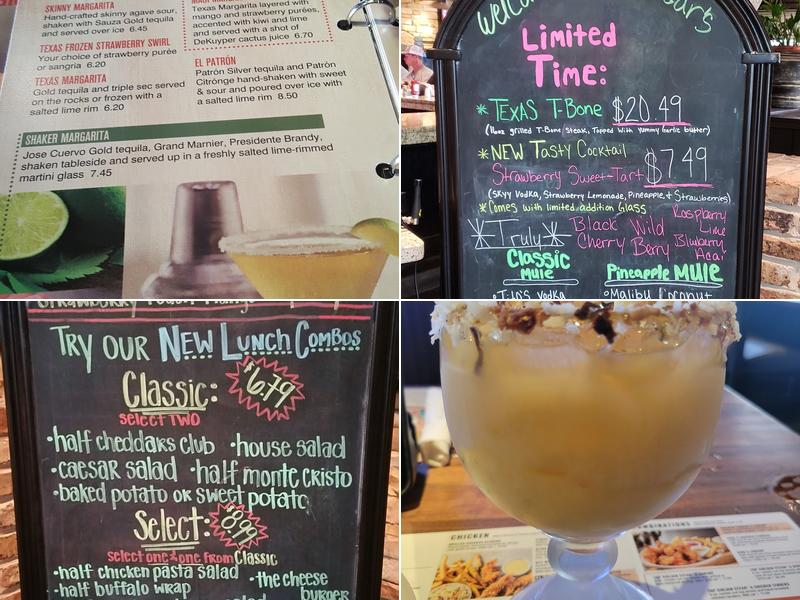 SKINNY MARGARITA
Hand-crafted skinny agave sour,
shaken with Sauza Gold tequila
and served over ice 6.45
TEXAS FROZEN STRAWBERRY SWIRL
Your choice of strawberry purée
or sangria 6.20
TEXAS MARGARITA
Gold tequila and triple sec served
on the rocks or frozen with a
salted lime rim 6.20
Texas Margarita layered with
mango and strawberry purées,
accented with kiwi and lime
and served with a shot of
DeKuyper cactus juice 6.70
EL PATRÓN
Patrón Silver tequila and Patrón
Citrónge hand-shaken with sweet
& sour and poured over ice with
a salted lime rim 8.50
SHAKER MARGARITA
Jose Cuervo Gold tequila, Grand Marnier, Presidente Brandy,
shaken tableside and served up in a freshly salted lime-rimmed
martini glass 7.45
Limited
Time:
* TEXAS T-Bone $20.49
(16oz grilled T-Bone Steak, Topped With Yummy garlic butter)
* NEW Tasty Cocktail
Strawberry Sweet-Tart $7.49
(SKYY Vodka, Strawberry Lemonade, Pineapple, & Strawberries)
* Comes with limited addition Glass
Truly
Black Cherry
Wild Berry
Raspberry Lime
Bluberry Acai
Classic
MULE
• Tito's Vodka
Pineapple MULE
• Malibu Coconut
TRY OUR NEW LUNCH COMBOS
Classic: $6.79
select TWO
• half cheddars club • house salad
• caesar salad • half monte cristo
• baked potato or sweet potato
Select: $8.99
select one & one from Classic
• half chicken pasta salad • the cheese
burger
• half buffalo wrap
CHICKEN